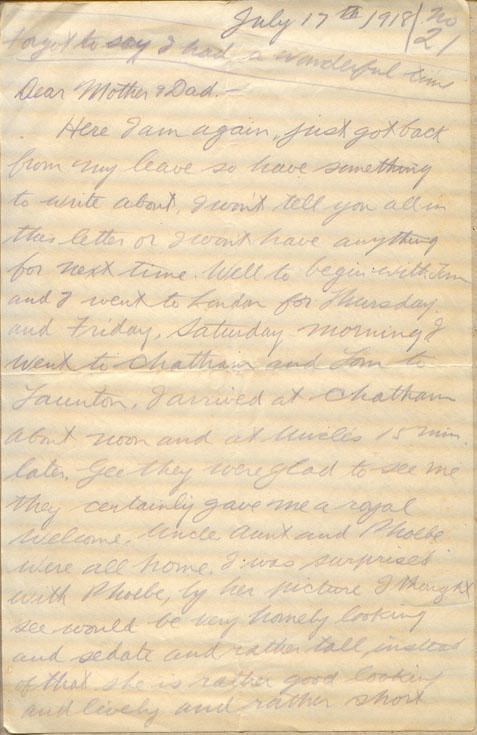 July 17th 1918 / No 21
forgot to say I had a wonderful time
Dear Mother & Dad.—
Here I am again, just got back
from my leave so have something
to write about, I won't tell you all in
this letter or I wont have anything
for next time. Well to begin with Tom
and I went to London for Thursday
and Friday, Saturday morning I
went to Chatham and Tom to
Taunton. I arrived at Chatham
about noon and at Uncles 15 min.
later. Gee they were glad to see me
they certainly gave me a royal
welcome. Uncle Aunt and Phoebe
were all home. I was surprised
with Phoebe, by her picture I thought
see would be very homely looking
and sedate and rather tall, instead
of that she is rather good looking
and lively and rather short